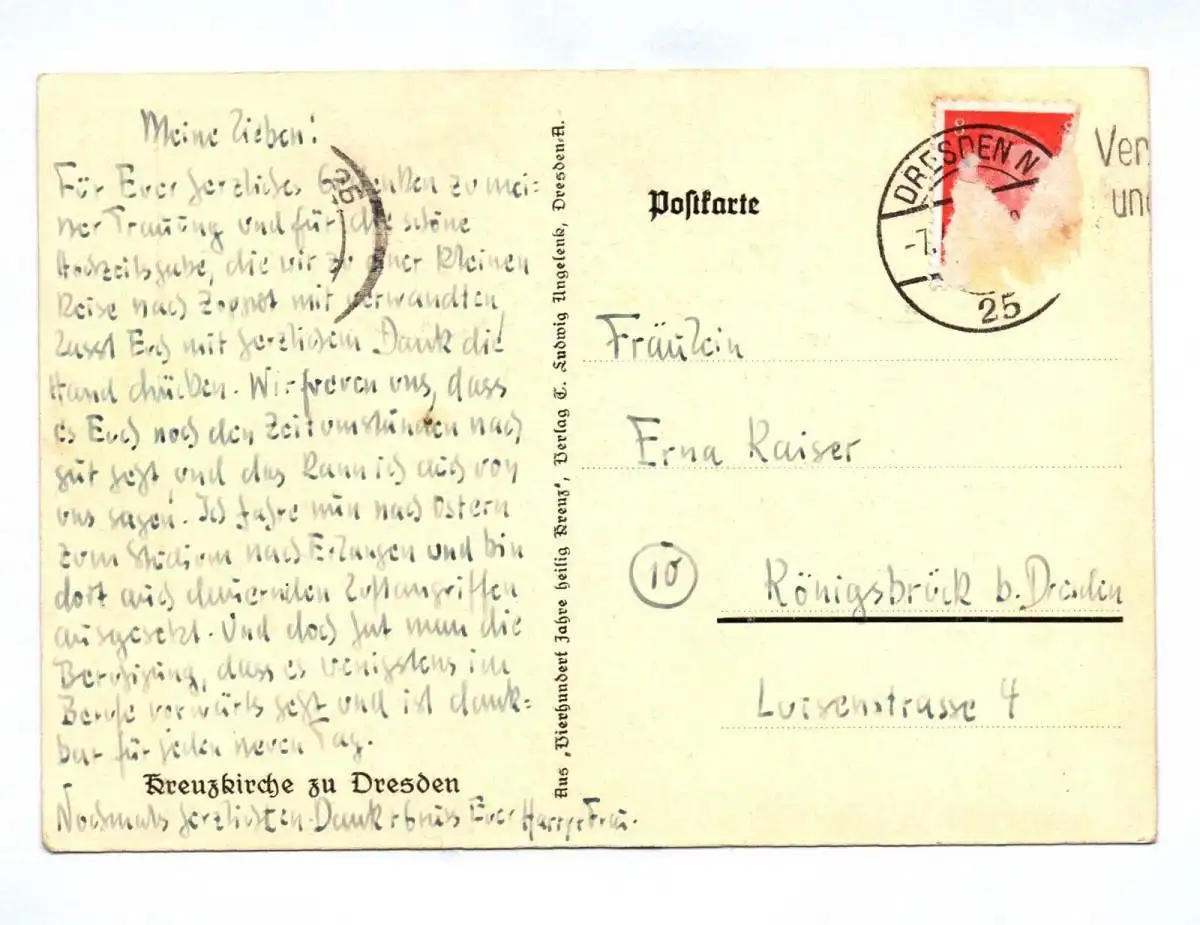 Meine Lieben!
Für Euer herzliches Gedenken zu mei=
ner Trauung und für die schöne
Hochzeitsgabe, die wir zu einer kleinen
Reise nach Zoppot mit verwandten,
lasst Euch mit herzlichem Dank die
Hand drücken. Wir freuen uns, dass
es Euch noch den Zeitumständen nach
gut geht, und das kann ich auch von
uns sagen. Ich fahre nun nach Ostern
zum Studium nach Erlangen und bin
dort auch dauernden Luftangriffen
ausgesetzt. Und doch hat man die
Beruhigung, dass es wenigstens im
Berufe vorwärts geht und ist dank=
bar für jeden neuen Tag.
Kreuzkirche zu Dresden
Nochmals herzlichsten Dank + Gruss Euer Harry + Frau.
Aus „Vierhundert Jahre heilig Kreuz", Verlag C. Ludwig Ungelenk, Dresden-A.
Postkarte
DRESDEN N
-7.
25
Ver
und
Fräulein
Erna Kaiser
10
Königsbrück b. Dresden
Luisenstrasse 4